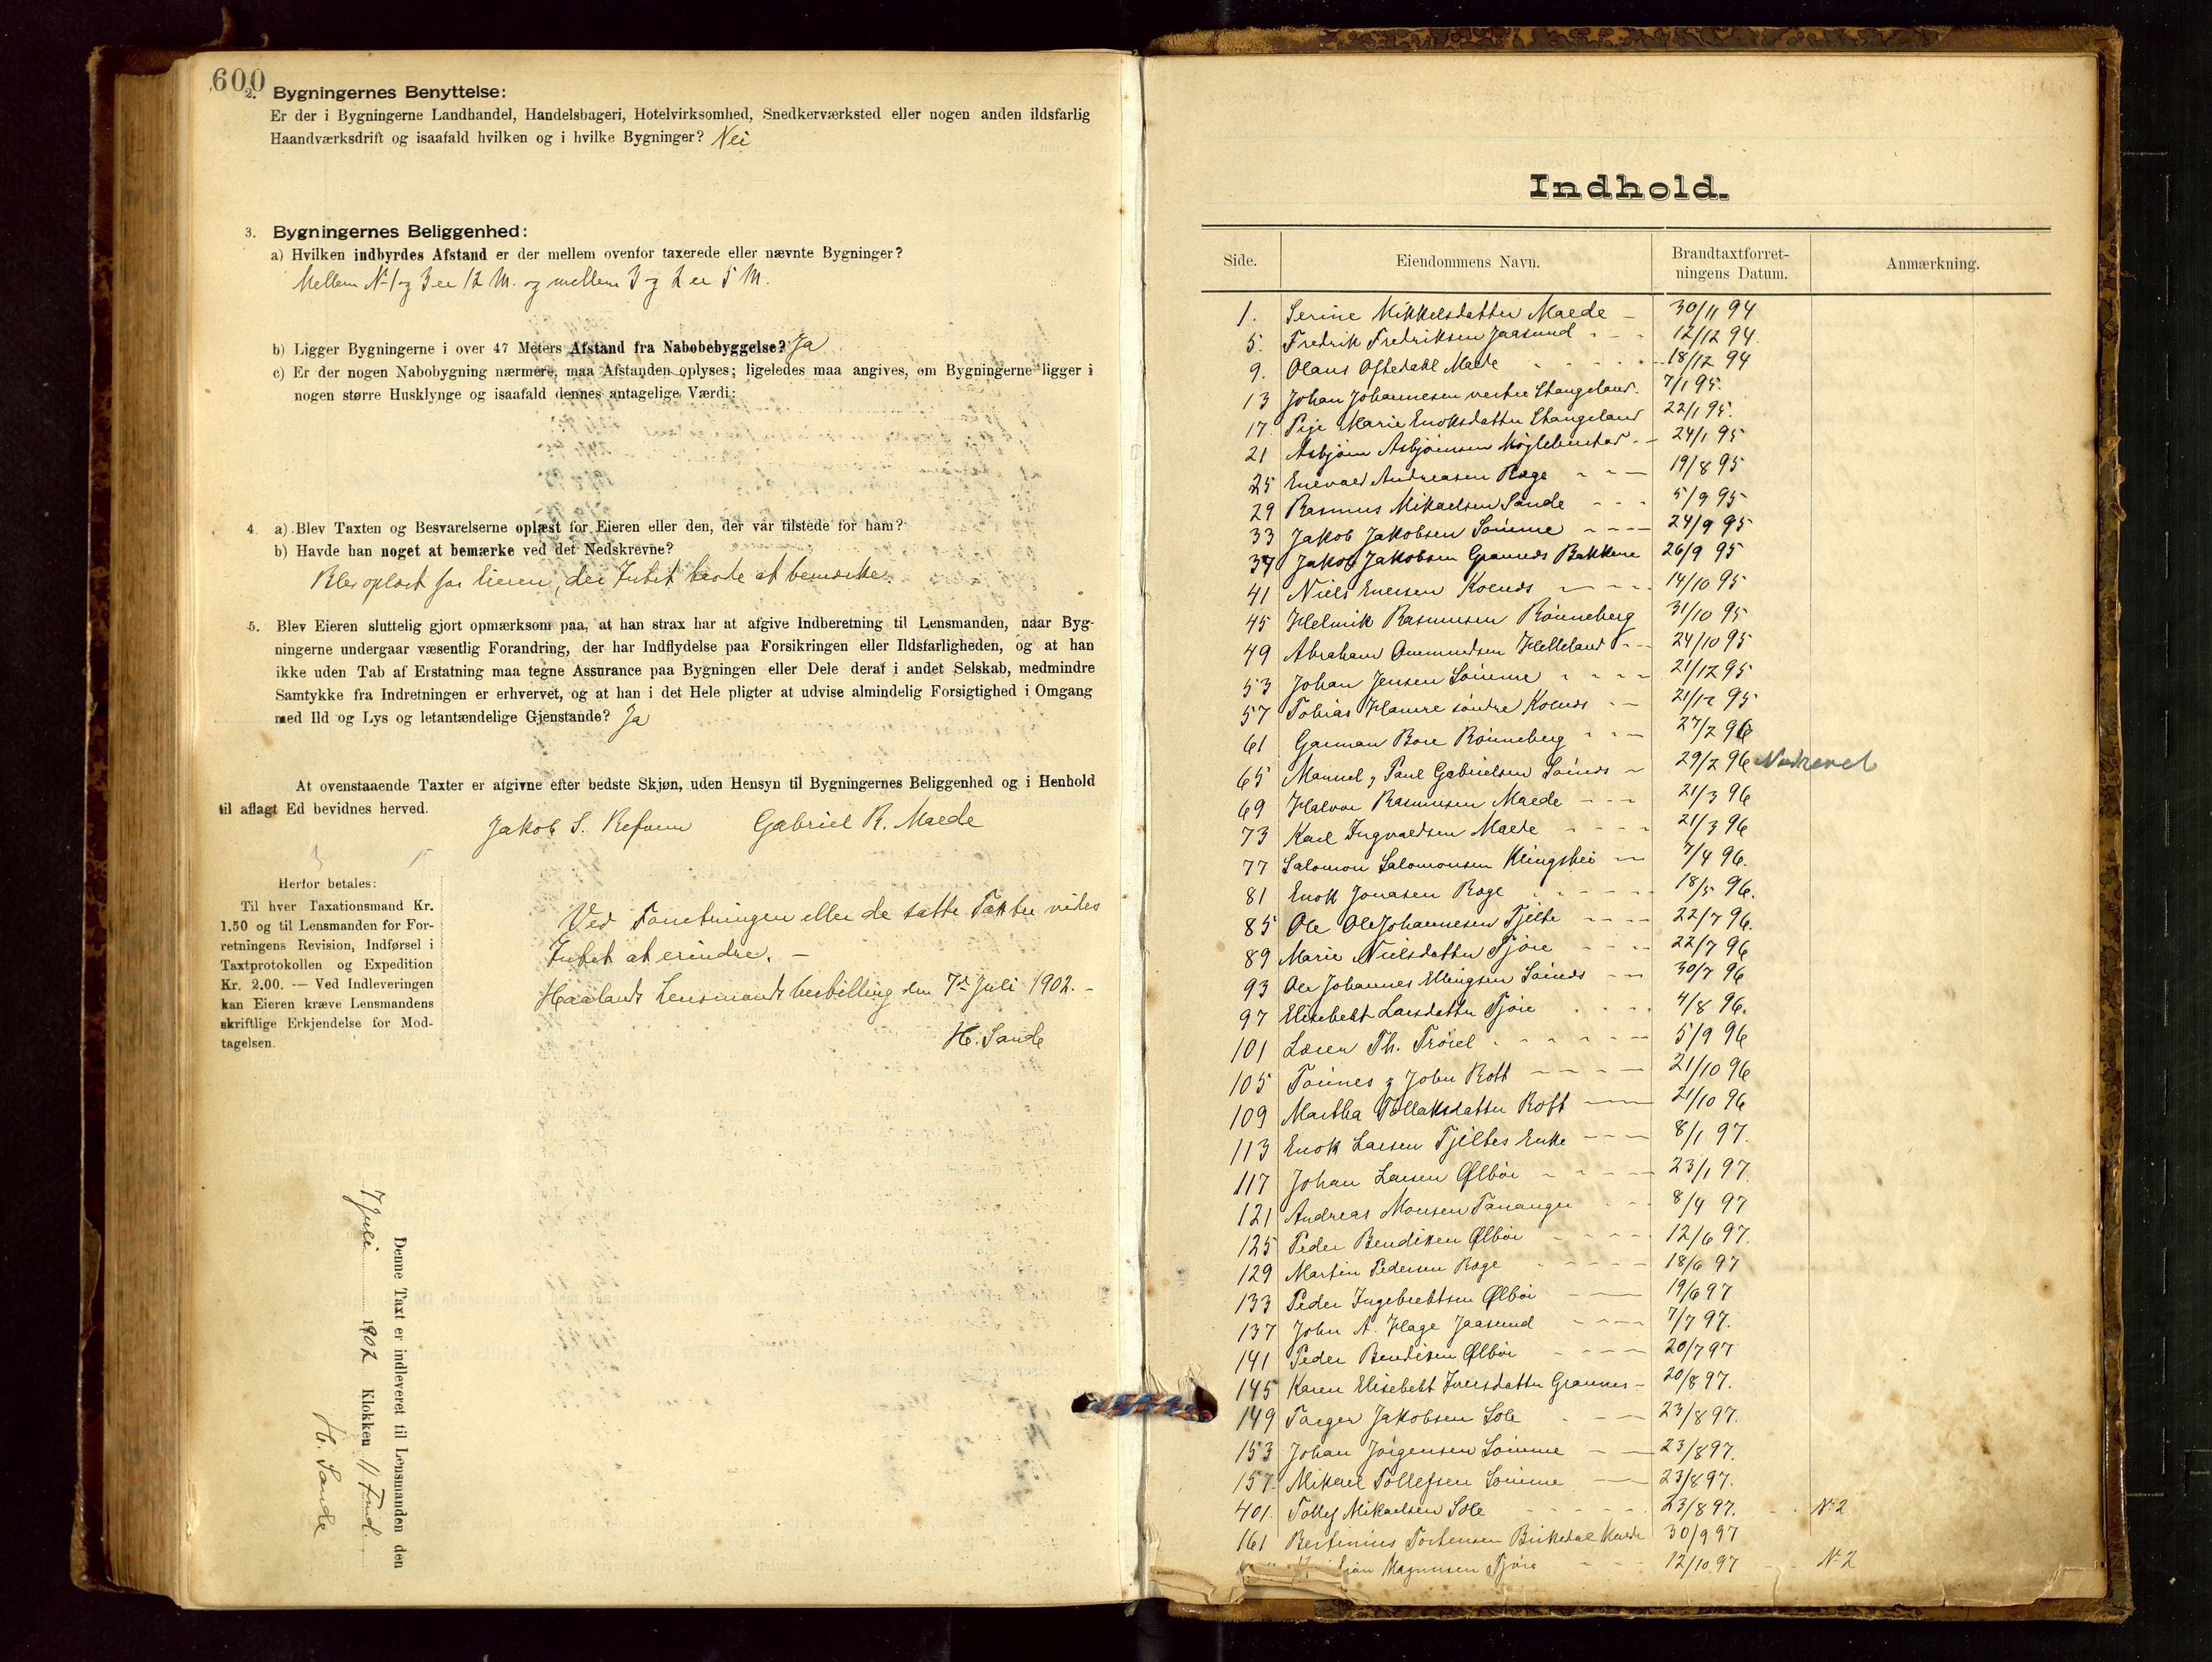 600
2. Bygningernes Benyttelse:
Er der i Bygningerne Landhandel, Handelsbageri, Hotelvirksomhed, Snedkerværksted eller nogen anden ildsfarlig
Haandværksdrift og isaafald hvilken og i hvilke Bygninger? Nei
3. Bygningernes Beliggenhed:
a) Hvilken indbyrdes Afstand er der mellem ovenfor taxerede eller nævnte Bygninger?
Mellem No 1 og 3 er 12 M. og mellem 3 og 2 er 5 M.
b) Ligger Bygningerne i over 47 Meters Afstand fra Nabobebyggelse? Ja
c) Er der nogen Nabobygning nærmere, maa Afstanden oplyses; ligeledes maa angives, om Bygningerne ligger i
nogen større Husklynge og isaafald dennes antagelige Værdi:
4. a) Blev Taxten og Besvarelserne oplæst for Eieren eller den, der var tilstede for ham?
b) Havde han noget at bemærke ved det Nedskrevne?
Blev oplæst for Eieren, der Intet havde at bemærke.
5. Blev Eieren sluttelig gjort opmærksom paa, at han strax har at afgive Indberetning til Lensmanden, naar Byg-
ningerne undergaar væsentlig Forandring, der har Indflydelse paa Forsikringen eller Ildsfarligheden, og at han
ikke uden Tab af Erstatning maa tegne Assurance paa Bygningen eller Dele deraf i andet Selskab, medmindre
Samtykke fra Indretningen er erhvervet, og at han i det Hele pligter at udvise almindelig Forsigtighed i Omgang
med Ild og Lys og letantændelige Gjenstande? Ja
At ovenstaaende Taxter er afgivne efter bedste Skjøn, uden Hensyn til Bygningernes Beliggenhed og i Henhold
til aflagt Ed bevidnes herved.
Jakob S. Refsnes Gabriel R. Mælde
Herfor betales:
Til hver Taxationsmand Kr.
1.50 og til Lensmanden for For-
retningens Revision, Indførsel i
Taxtprotokollen og Expedition
Kr. 2.00. — Ved Indleveringen
kan Eieren kræve Lensmandens
skriftlige Erkjendelse for Mod-
tagelsen.
Ved Forretningen eller de satte Taxter vides
Intet at erindre. —
Haalands Lensmandsbestilling den 7de Juli 1902. —
H. Sande
Denne Taxt er indleveret til Lensmanden den
7 Juli 1902 Klokken 11 Fmd.
H. Sande
Indhold.
Side. Eiendommens Navn. Brandtaxtforret-ningens Datum. Anmærkning.
1. Serine Mikkelsdatter Mælde 30/11 94
5. Fredrik Fredriksen Jaasund 12/12 94.
9. Olaus Oftedahl Mælde 18/12 94
13 Johan Johannesen vestre Stangeland. 7/1 95.
17. Marie Enoksdatter Stangeland 22/1 95.
21 Asbjørn Asbjørnsen 24/1 95
25 Enevald Andreasen Ræge 19/8 95
29 Rasmus Mikaelsen Sande 5/9 95
33 Jakob Jakobsen Sømme 24/9 95
37 Jakob Jakobsen Grannes Bakkene 26/9 95
41 Niels Enersen Kolnes 14/10 95
45 Helmik Rasmusen Rønneberg 31/10 95
49 Abraham Helleland 24/10 95
53 Johan Jensen Sømme 21/12 95
57 Tobias Hamre søndre Kolnes 21/12 95
61 Garman Bore Rønneberg 27/2 96
65 Manuel og Paul Gabrielsen Sømnes 29/2 96
69 Halvor Rasmusen Mælde 21/3 96
73 Karl Ingvaldsen Mælde 21/3 96
77 Salomon Salomonsen Klingshei 7/4 96.
81 Enok Jonasen Ræge 18/5 96.
85 Ole Ole Johannesen Tjelte 22/7 96.
89 Marie Nielsdatter Tjøre 22/7 96
93 Ole Johannes Ellingsen Sømnes 30/7 96
97 Elisebeht Larsdatter Tjøre 4/8 96.
101 Th. Trøiel 5/9 96
105 Tønnes og John Rott 21/10 96
109 Martha Tollaksdatter Rott 21/10 96
113 Enok Larsen Tjeltes Enke 8/1 97.
117 Johan Larsen Ølbør 23/1 97.
121 Andreas Monsen Tananger 8/4 97
125 Peder Bendiksen Ølbør 12/6 97.
129 Martin Pedersen Ræge 18/6 97
133 Peder Ingebrethsen Ølbør 19/6 97
137 John A. Hage Jaasund 7/7 97.
141 Peder Bendiksen Ølbør 20/7 97
145 Karen Elisebeht Iversdatter Grannes 20/8 97.
149 Torger Jakobsen Sole 23/8 97.
153 Johan Jørgensen Sømme 23/8 97.
157. Mikael Tollefsen Sømme 23/8 97.
401. Tollef Mikaelsen Sole 23/8 97. No 2
161 Bertinius Torkensen Birkedal 30/9 97
Magnusen Tjøre 12/10 97 No 2